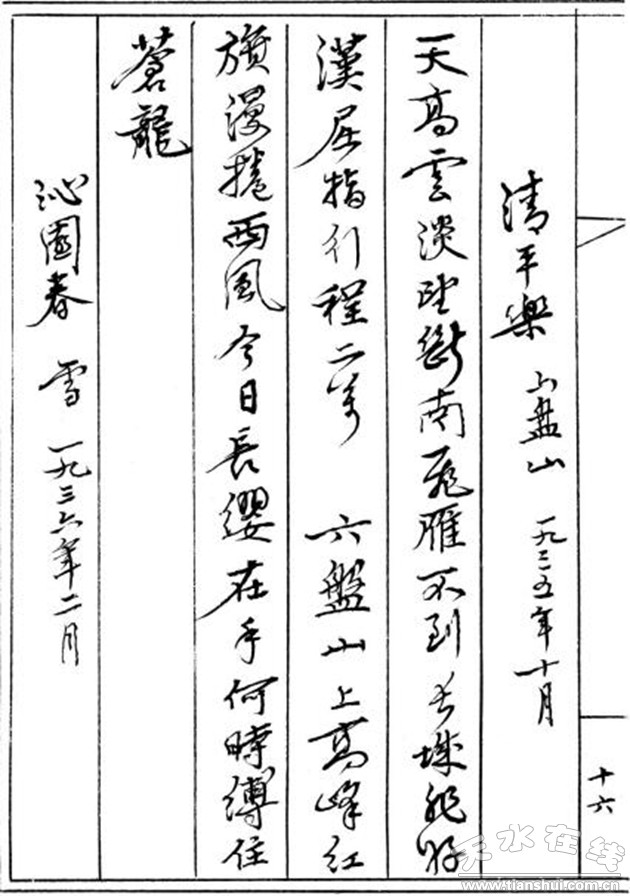 十六
清平樂 六盘山 一九三五年十月
天高雲淡望斷南飛雁不到長城非好
漢屈指行程二萬 六盤山上高峰紅
旗漫捲西風今日長纓在手何時縛住
蒼龍
沁園春 雪 一九三六年二月
天水在线
www.tianshui.com.cn